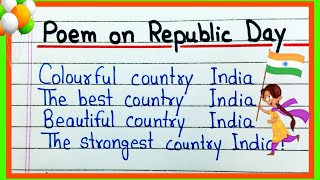 Poem on Republic Day
Colourful country India
The best country India
Beautiful country India
The strongest country India!